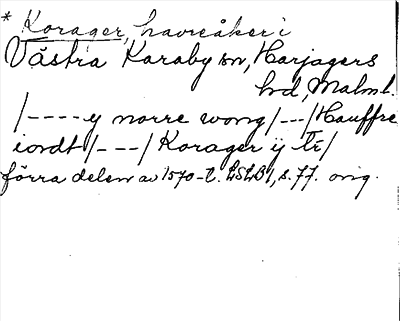 * Korager, havreåker i
Västra Karaby sn, Harjagers
hd, Malm l.
/----y norre wong/---/Hauffre
iordt/---/Korager ÿ tr/
förra delen av 1570-t. LSLB1, s. 77. orig.